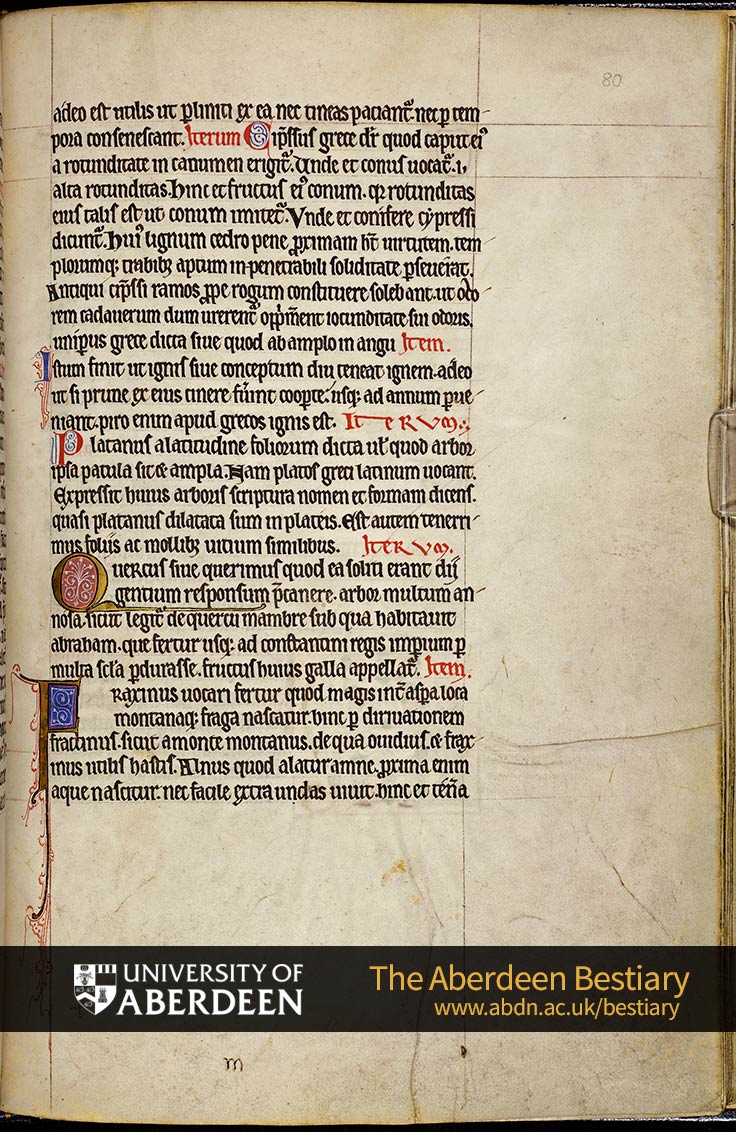 80
adeo est utilis ut ꝑliniti ex ea nec tineas paciant᷑. nec ꝑ tem
pora consenescant. Iterum Cip̄ssus grece dr̄ quod caput ei᷒
a rotunditate in cacumen erigit᷑. Unde et conus uocat᷑ .i.
alta rotunditas. Hinc et fructus ei᷒ conum. qr rotunditas
eius talis est ut conum imitet᷑. Vnde et conifere cypressi
dicunt᷑. Hui᷒ lignum cedro pene ꝓximam ht̄ uirtutem. tem
plorumq; trabibꝫ aptum inpenetrabili soliditate ꝑseuerat.
Antiqui cip̄ssi ramos ꝓpe rogum constituere solebant. ut odo
rem cadauerum dum urerent᷑ opp̄ment iocunditate sui odoris.
uniperus grece dicta siue quod ab amplo in angu Item.
I stum finit ut ignis siue conceptum diu teneat ignem. adeo
ut si prune ex eius cinere fuīnt cooperte. usq; ad annum ꝑue
niant. piro enim apud grecos ignis est. ITERVM.
Platanus a latitudine foliorum dicta uł quod arbor
ipsa patula sit & ampla. Nam platos greci latinum uocant.
Expressit huius arboris scriptura nomen et formam dicens.
quasi platanus dilatata sum in plateis. Est autem tenerri
mus foliis ac mollibꝫ uitium similibus. ITERVM.
Quercus siue querimus quod ea soliti erant dij
gentium responsum p̄canere. arbor multum an
nosa. sicut legit᷑ de quercu mambre sub qua habitauit
abraham. que fertur usq; ad constantini regis imperium ꝑ
multa scła ꝑdurasse. fructus huius galla appellat᷑. Item.
Fraxinus uocari fertur quod magis int᷑ aspa loca
montanaq; fraga nascatur. hinc ꝑ diriuationem
fractinus. sicut a monte montanus. de qua ouidius. & frax
inus utilis hastis. Alnus quod alatur amne. ꝓxima enim
aque nascitur. nec facile extra undas uiuit. hinc et tēn̄a
UNIVERSITY OF
ABERDEEN
The Aberdeen Bestiary
www.abdn.ac.uk/bestiary
m